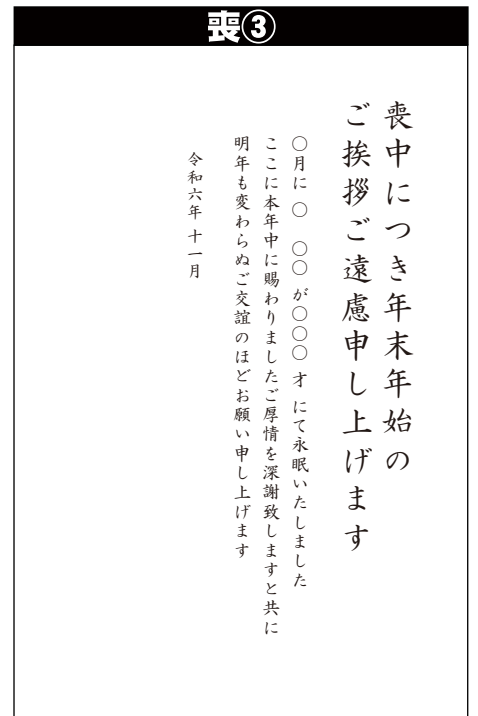 喪③
喪中につき年末年始の
ご挨拶ご遠慮申し上げます
〇月に 〇 〇〇 が〇〇〇 才 にて永眠いたしました
ここに本年中に賜わりましたご厚情を深謝致しますと共に
明年も変わらぬご交誼のほどお願い申し上げます
令和六年 十一月